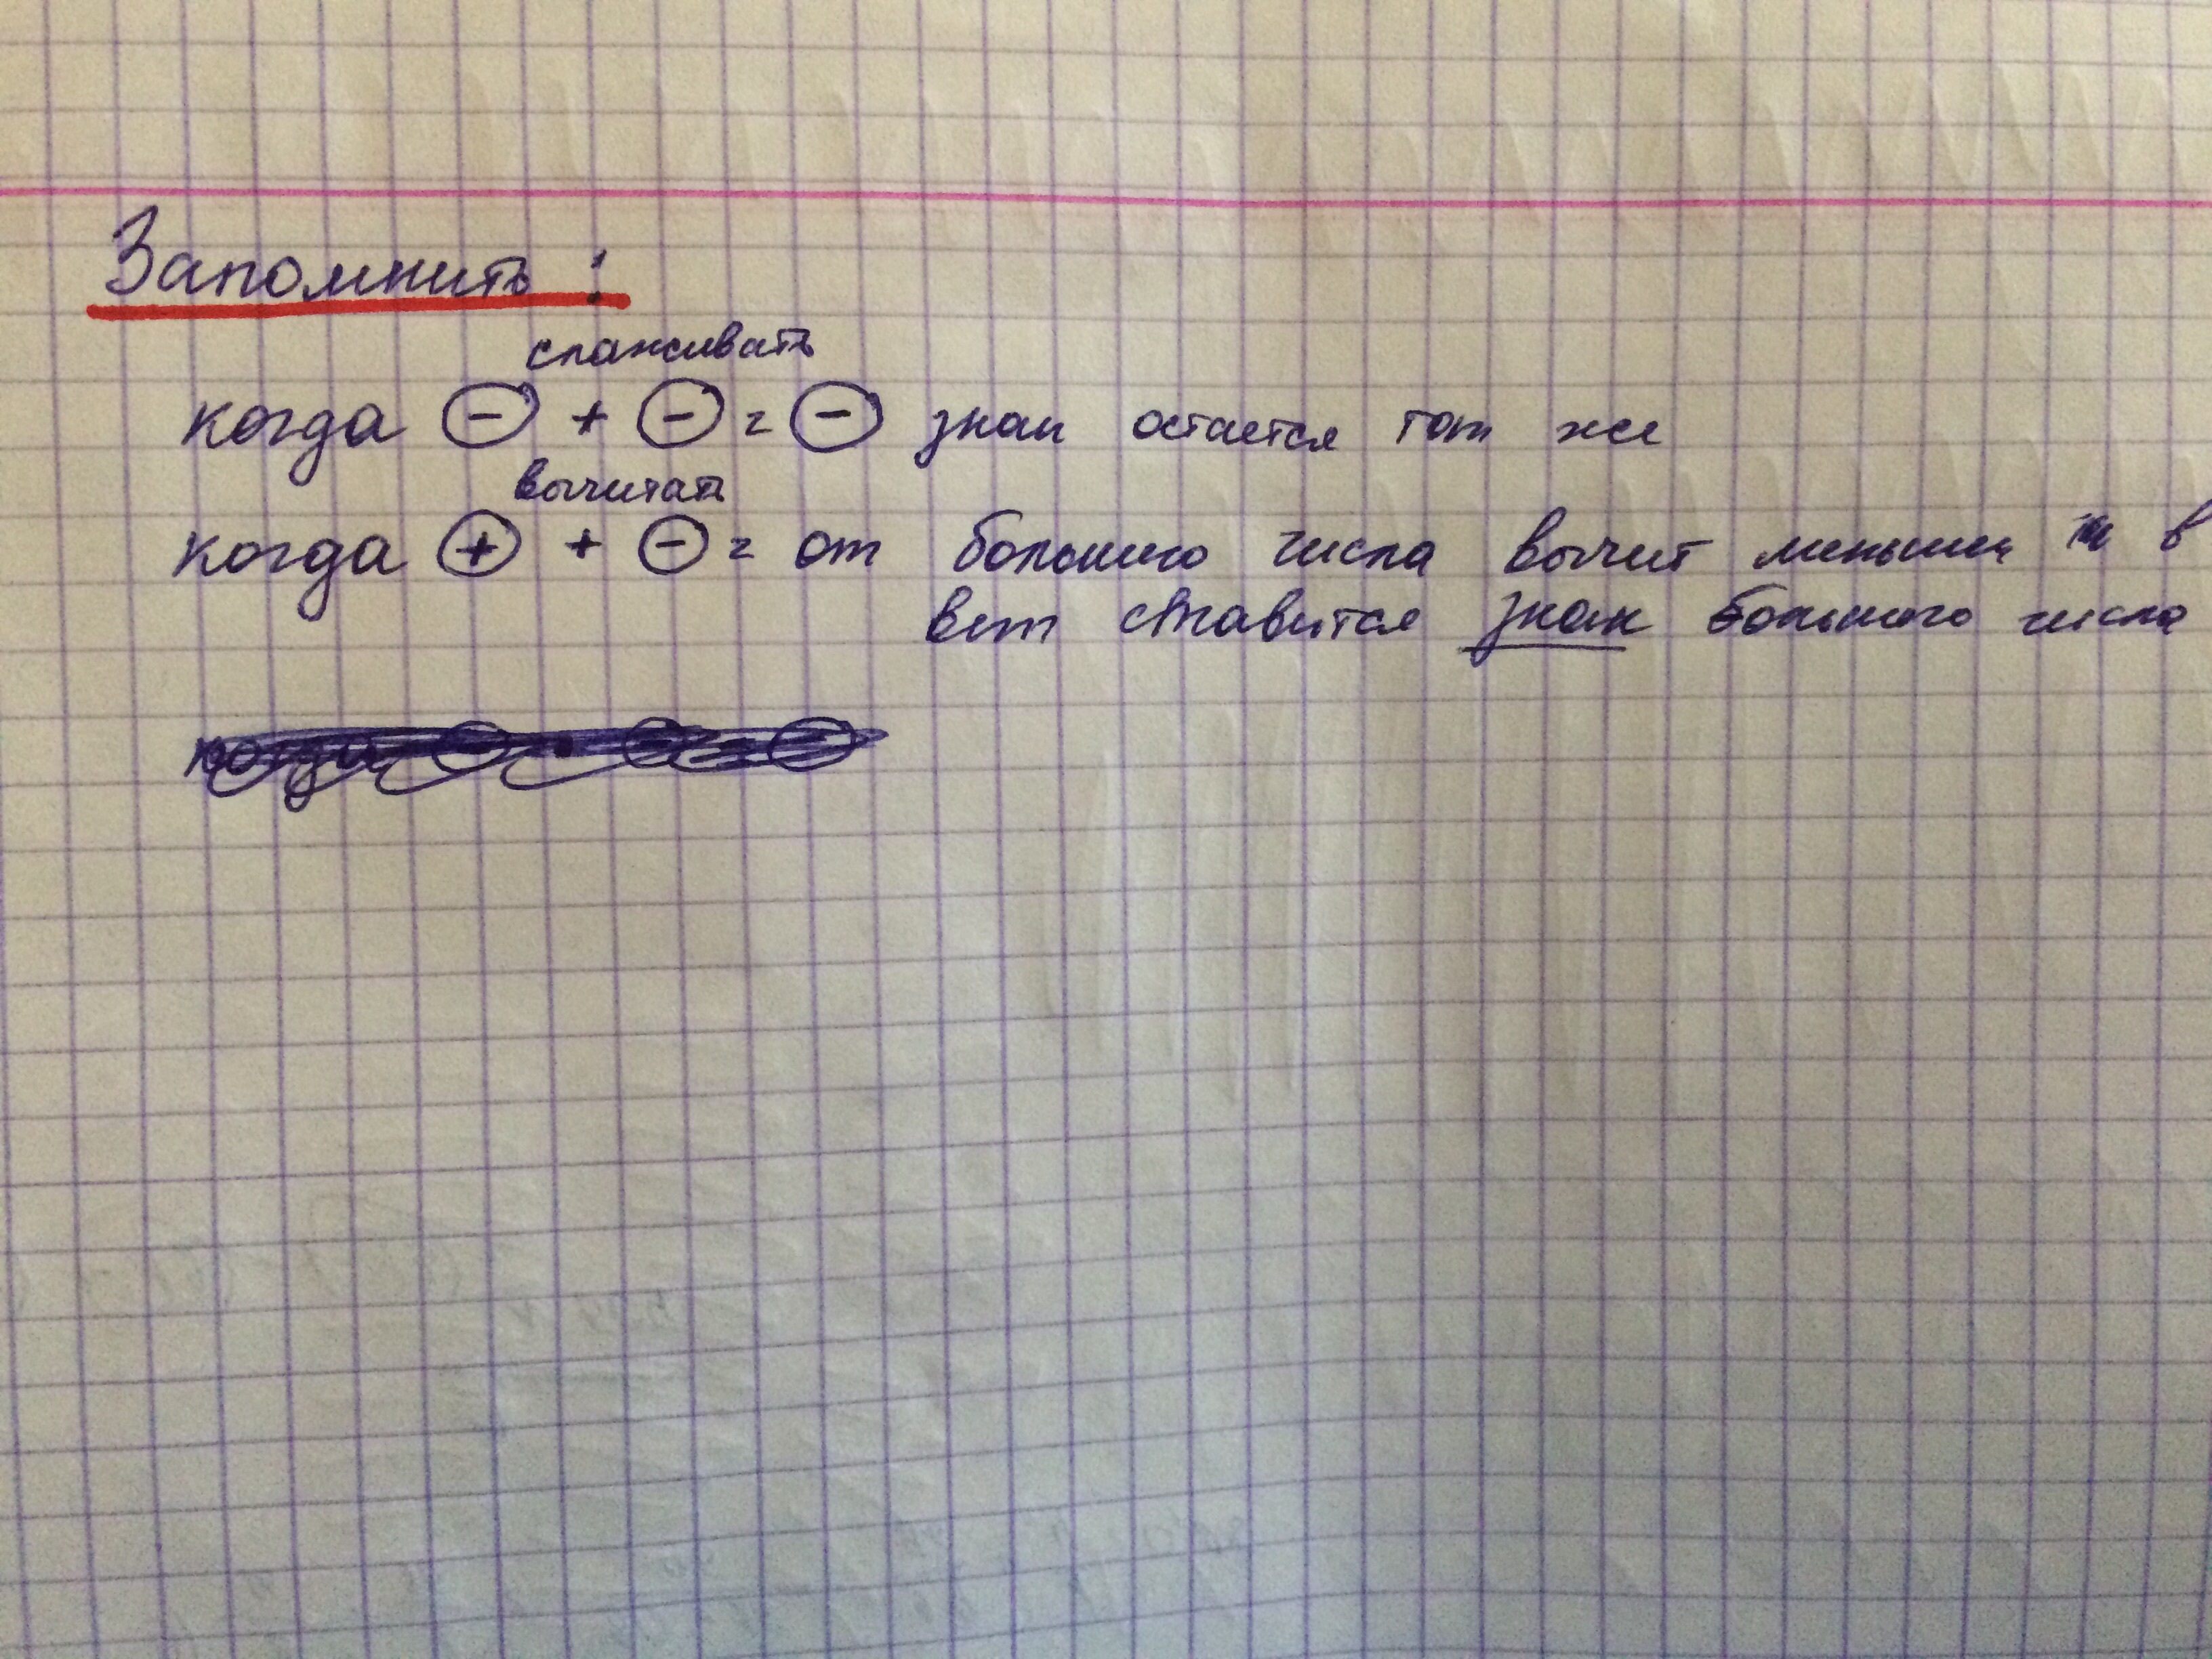 Запомнить:
слаживать
когда ⊖ + ⊖ = ⊖ знак остается тот же
вычитать
когда ⊕ + ⊖ = от большего числа вычит меньшее и в
вет ставится знак большого числа